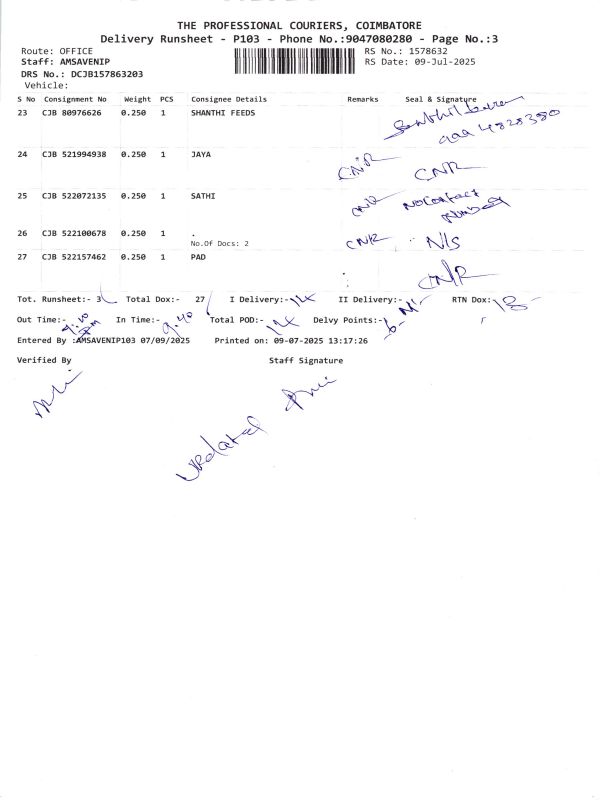 THE PROFESSIONAL COURIERS, COIMBATORE
Delivery Runsheet - P103 - Phone No.:9047080280 - Page No.:3
Route: OFFICE RS No.: 1578632
Staff: AMSAVENIP RS Date: 09-Jul-2025
DRS No.: DCJB157863203
Vehicle:
S No Consignment No Weight PCS Consignee Details Remarks Seal & Signature
23 CJB 80976626 0.250 1 SHANTHI FEEDS
24 CJB 521994938 0.250 1 JAYA CNR CNR
25 CJB 522072135 0.250 1 SATHI CNR No Contact
Number
26 CJB 522100678 0.250 1 . CNR N/S
No.Of Docs: 2
27 CJB 522157462 0.250 1 PAD CNR
Tot. Runsheet:- 3 Total Dox:- 27 I Delivery:- 14 II Delivery:- Nil RTN Dox:- 13
Out Time:- In Time:- 9.40 Total POD:- 14 Delvy Points:- 6
Entered By :AMSAVENIP103 07/09/2025 Printed on: 09-07-2025 13:17:26
Verified By Staff Signature
Updated